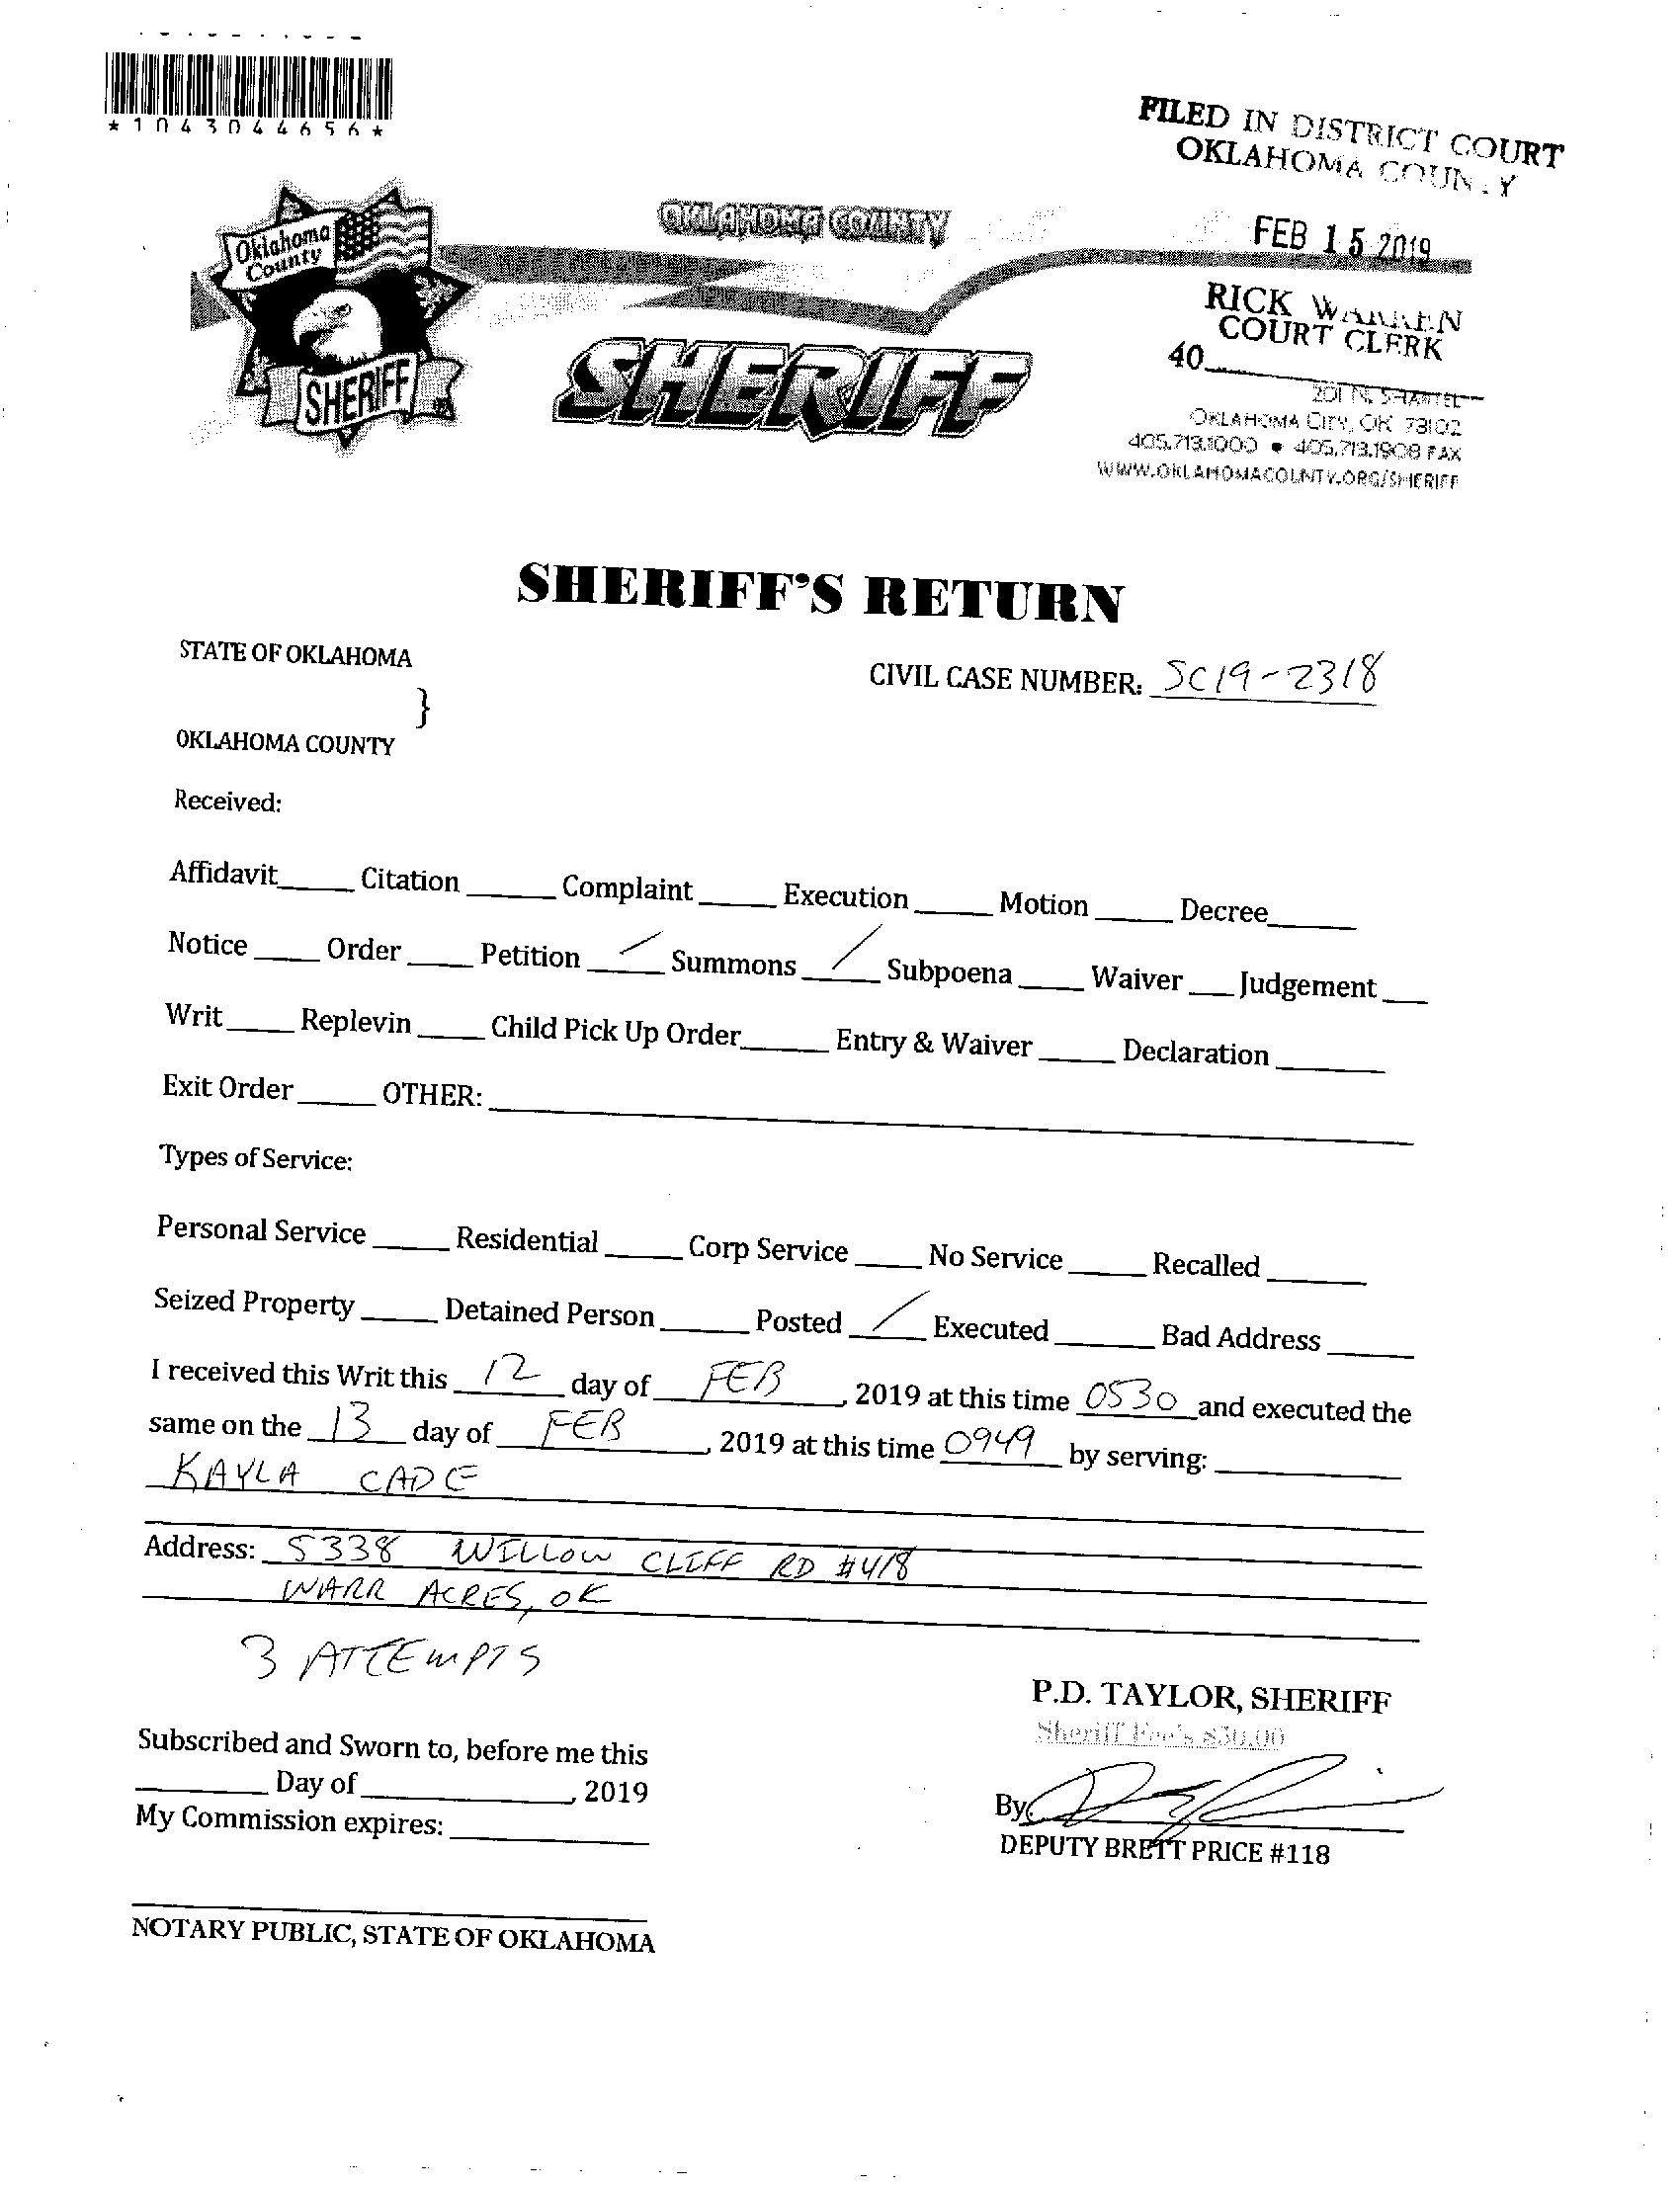 *1043044656*
FILED IN DISTRICT COURT
OKLAHOMA COUN Y
FEB 15 2019
RICK WARREN
COURT CLERK
40
Oklahoma
County
SHERIFF
OKLAHOMA COUNTY
SHERIFF
201 N. SHARTEL
OKLAHOMA CITY, OK 73102
405.713.1000 • 405.713.1908 FAX
WWW.OKLAHOMACOUNTY.ORG/SHERIFF
SHERIFF'S RETURN
STATE OF OKLAHOMA
CIVIL CASE NUMBER: SC19-2318
}
OKLAHOMA COUNTY
Received:
Affidavit_____ Citation ______ Complaint _____ Execution _____ Motion _____ Decree______
Notice ____ Order ____ Petition __/__ Summons __/__ Subpoena ____ Waiver ___ Judgement ___
Writ ____ Replevin ____ Child Pick Up Order______ Entry & Waiver _____ Declaration _______
Exit Order _____ OTHER: ____________________
Types of Service:
Personal Service _____ Residential _____ Corp Service ____ No Service _____ Recalled ______
Seized Property _____ Detained Person ______ Posted __/__ Executed ______ Bad Address ______
I received this Writ this 12 day of FEB, 2019 at this time 0530 and executed the
same on the 13 day of FEB, 2019 at this time 0949 by serving: ____________
KAYLA CADE
Address: 5338 WILLOW CLIFF RD #418
WARR ACRES, OK
3 ATTEMPTS
P.D. TAYLOR, SHERIFF
Sheriff Fee's $30.00
Subscribed and Sworn to, before me this
________ Day of ______________, 2019
My Commission expires: ____________
By
DEPUTY BRETT PRICE #118
NOTARY PUBLIC, STATE OF OKLAHOMA